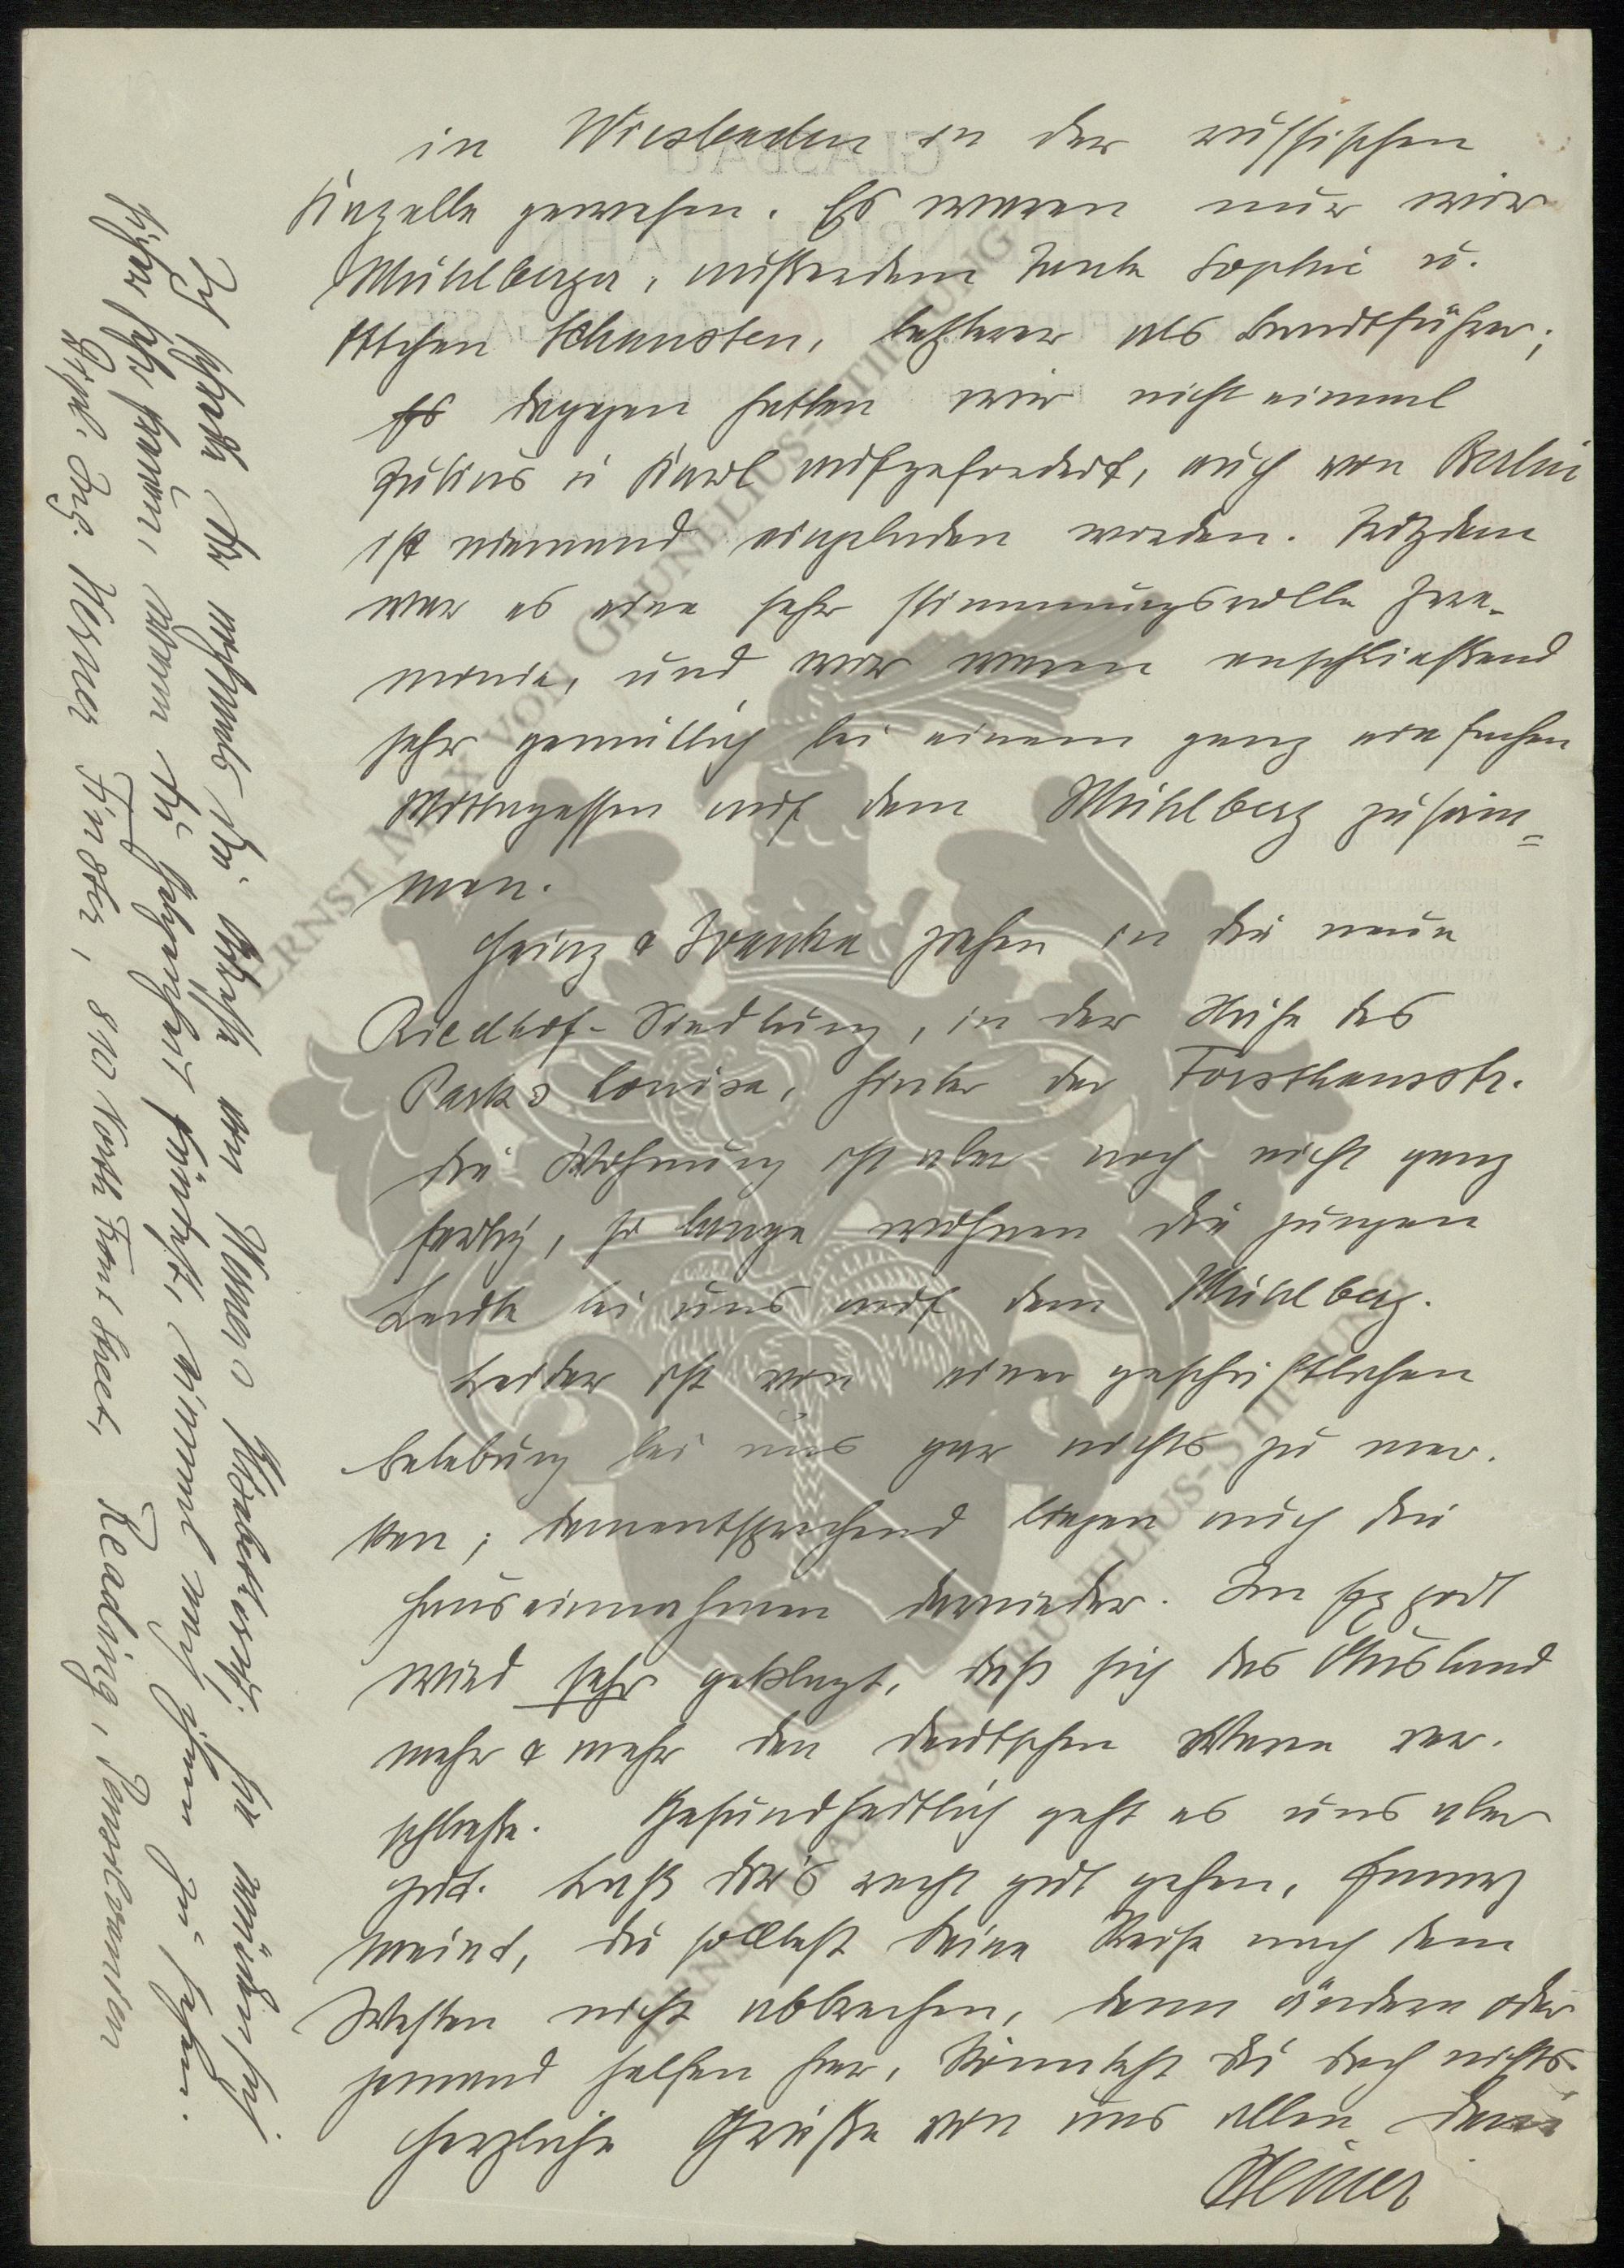 in Wiesbaden in der russischen
Kapelle gewesen. Es waren nur wir
Mühlberger, außerdem Tante Sophie u.
Ottchen Schansten, letzterer als Brautführer;
dagegen hatten wir nicht einmal
Julius u Karl aufgefordert, auch von Berlin
ist niemand eingeladen worden. Trotzdem
war es eine sehr stimmungsvolle Zere-
monie, und wir waren anschließend
sehr gemütlich bei einem ganz einfachen
Mittagessen auf dem Mühlberg zusam=
men.
Heinz & Franka ziehen in die neue
Riedhof-Siedlung, in der Nähe des
Parks Louisa, hinter der Forsthausstr.
Die Wohnung ist aber noch nicht ganz
fertig, so lange wohnen die jungen
Leute bei uns auf dem Mühlberg.
Leider ist von einer geschäftlichen
Belebung bei uns gar nichts zu mer-
ken; dementsprechend liegen auch die
Hauseinnahmen darnieder. Im Export
wird sehr geklagt, daß sich das Ausland
mehr & mehr den deutschen Waren ver-
schließe. Gesundheitlich geht es uns aber
gut. Laß Dir's recht gut gehen, Fanny
meint, Du solltest Deine Reise nach dem
Westen nicht abbrechen, denn ändern oder
jemand helfen hier, könntest Du doch nichts.
Herzliche Grüße von uns allen Dein
Heiner
Ich schreibe Dir nochmals die Adresse von Werner; sie würden sich
sicher sehr freuen, wenn Du Gelegenheit fändest, einmal nach ihnen zu sehen.
Dipl. Ing. Werner Finster, 810 North Front Street, Reading, Pensilvanien